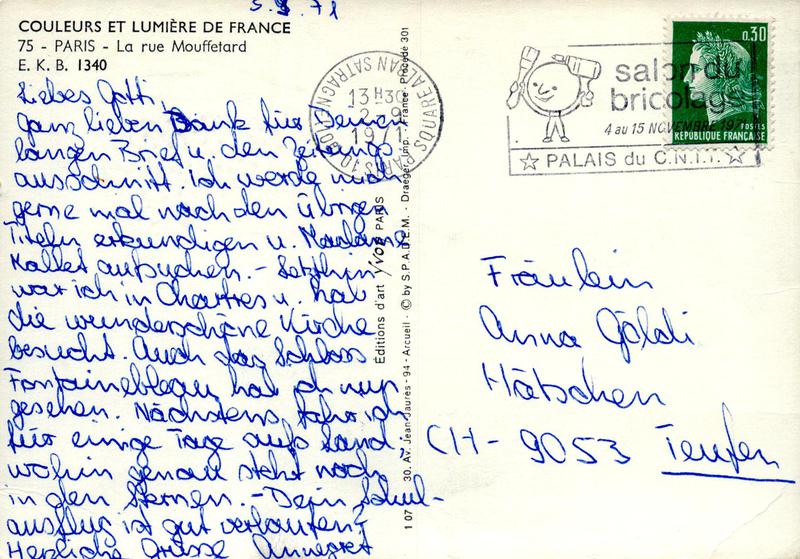 5.9.71
COULEURS ET LUMIÈRE DE FRANCE
75 - PARIS - La rue Mouffetard
E. K. B. 1340
Liebes Gotti,
ganz lieben Dank für Deinen
langen Brief u. den Zeitungs
ausschnitt. Ich werde mich
gerne mal nach den übrigen
Titeln erkundigen u. Madame
Mallet aufsuchen. - Letzthin
war ich in Chartres u. hab
die wunderschöne Kirche
besucht. Auch das Schloss
Fontainebleau hab ich nun
gesehen. Nächstens fahr ich
für einige Tage aufs Land,
wohin genau steht noch
in den Sternen. - Dein Schul-
ausflug ist gut verlaufen?
Herzliche Grüsse Annegret
Editions d'art YVON PARIS
1 07 30, Av. Jean-Jaurès - 94 - Arcueil - © by S.P.A.D.E.M. - Draeger Imp. - France - Procédé 301
13H30
PARIS 10
SQUARE ALBAN SATRAGNE
salon du
bricolage
4 au 15 NOVEMBRE 1971
☆ PALAIS du C.N.I.T. ☆
0,30
POSTES
RÉPUBLIQUE FRANÇAISE
Fräulein
Anna Göldi
Hätschen
CH - 9053 Teufen